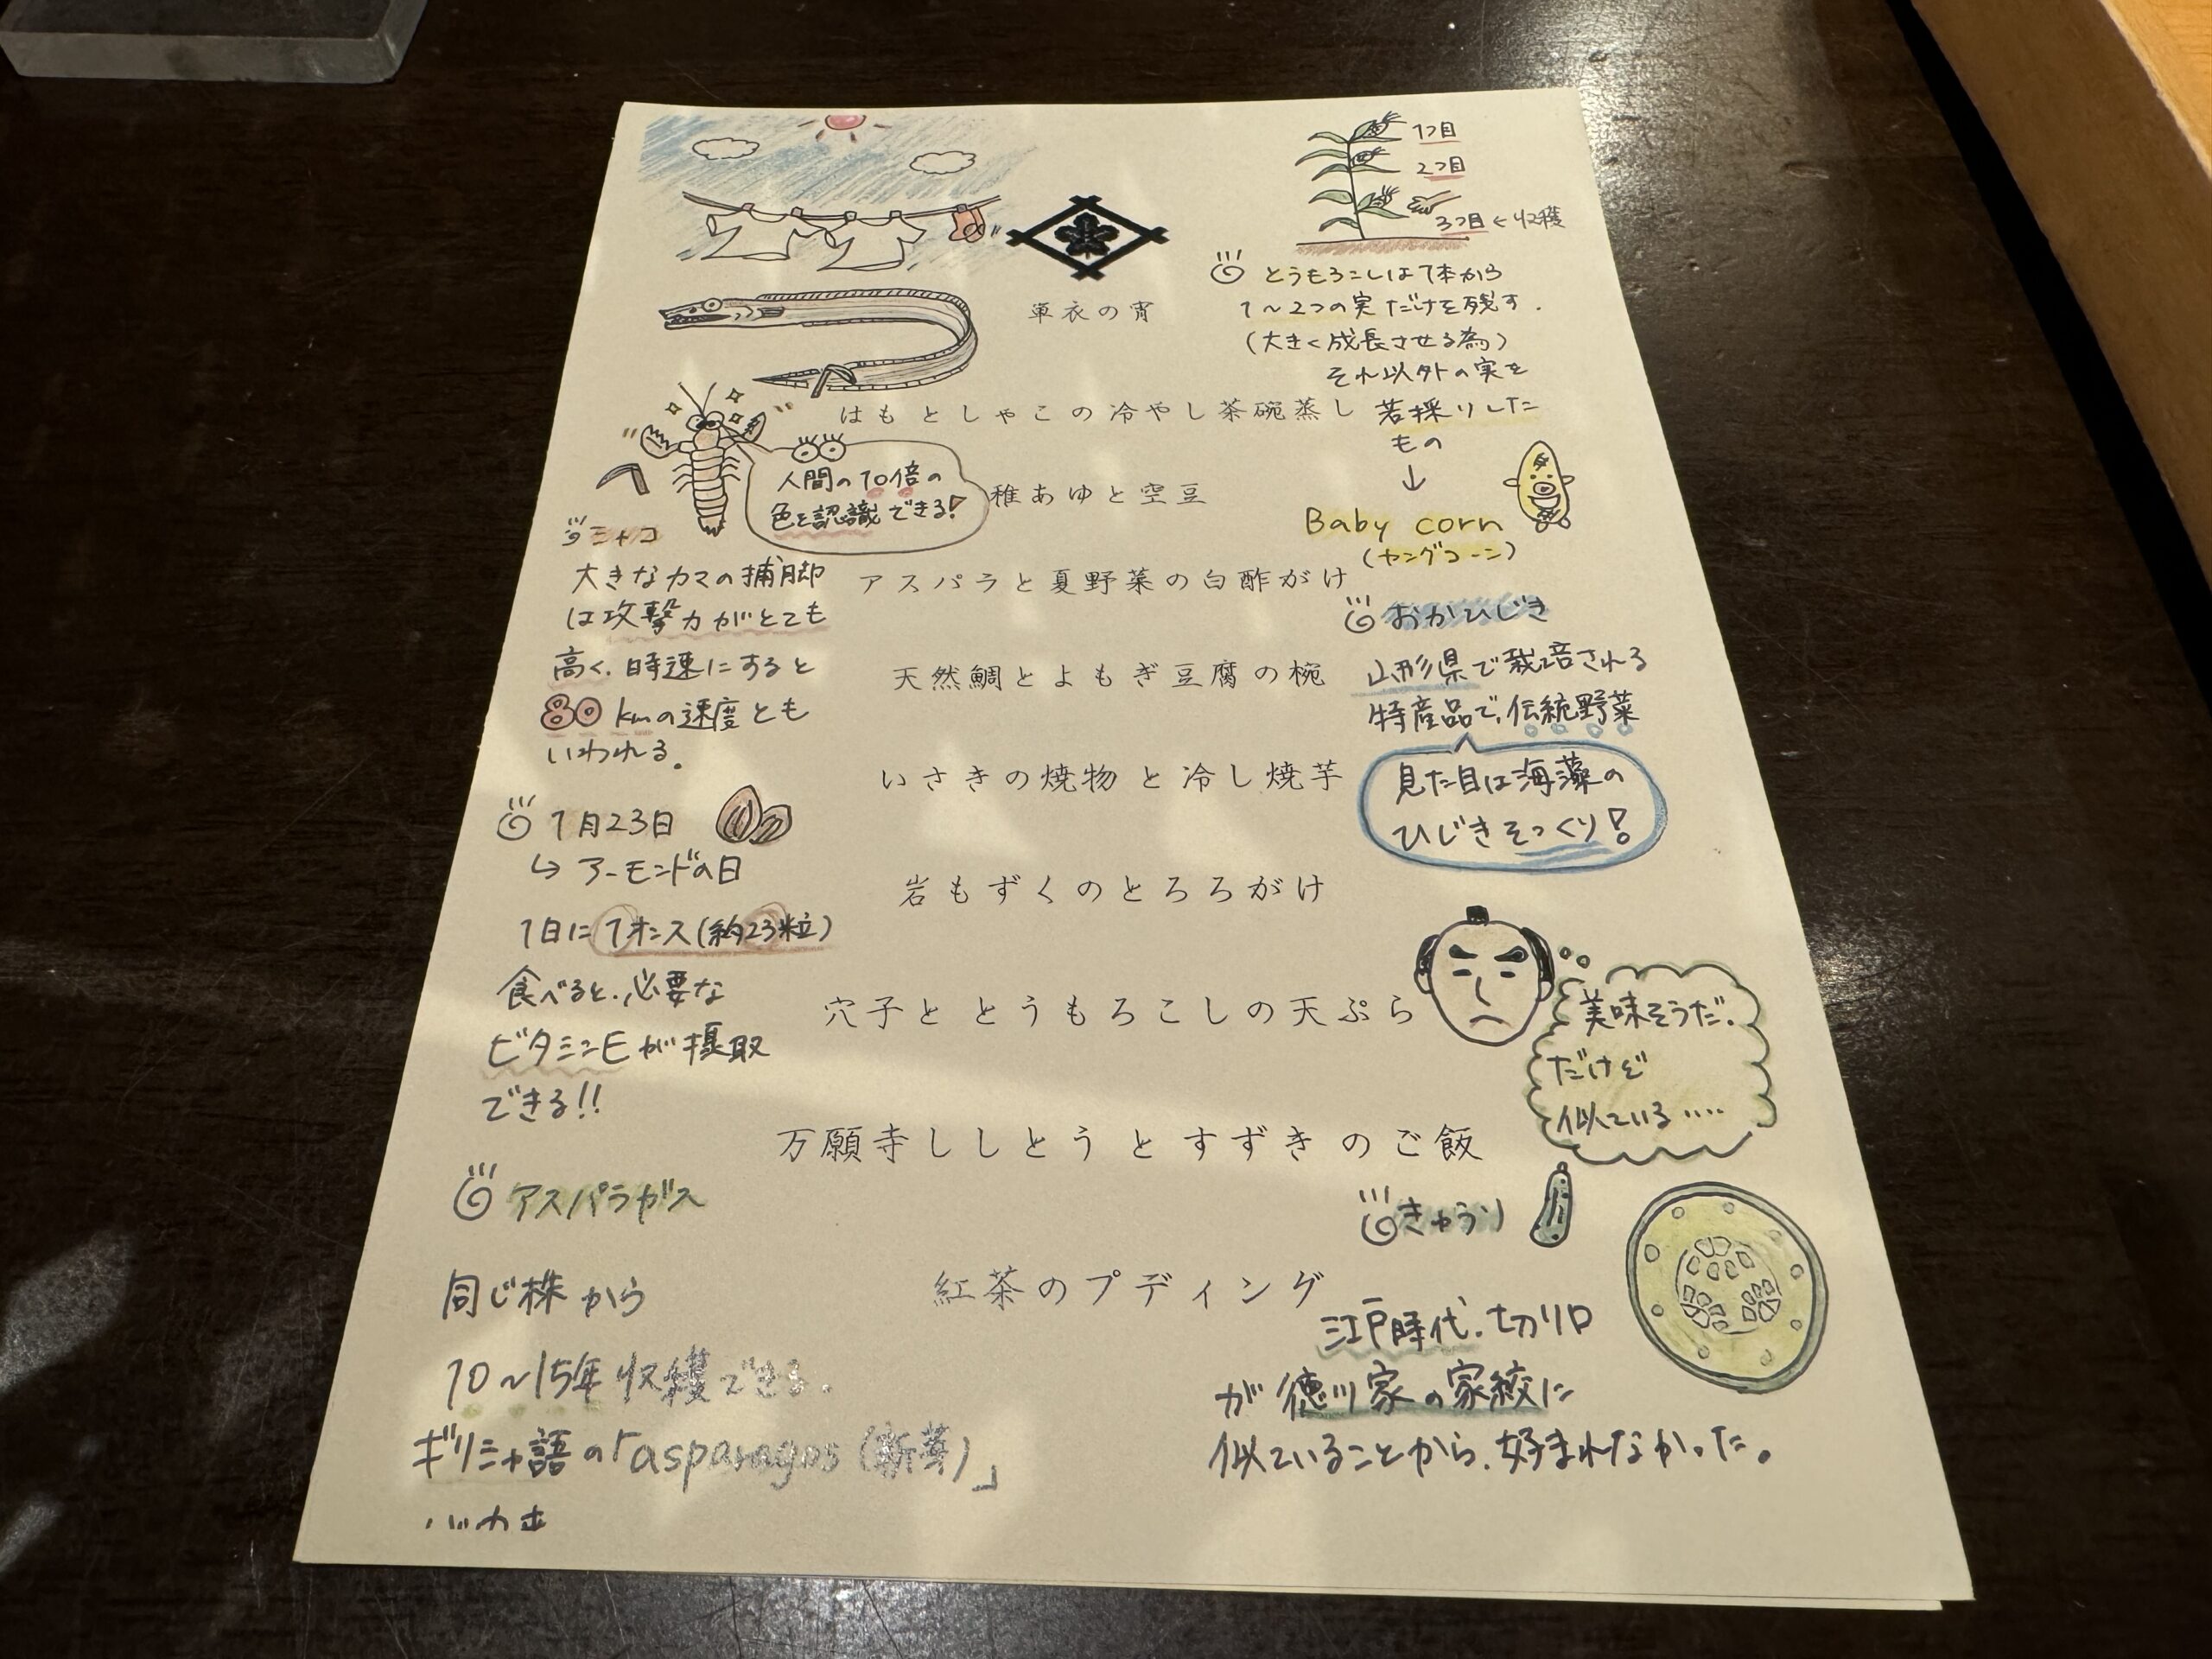 単衣の宵
はもとしゃこの冷やし茶碗蒸し
稚あゆと空豆
アスパラと夏野菜の白酢がけ
天然鯛とよもぎ豆腐の椀
いさきの焼物と冷し焼芋
岩もずくのとろろがけ
穴子ととうもろこしの天ぷら
万願寺ししとうとすずきのご飯
紅茶のプディング
人間の10倍の
色を認識できる!
シャコ
大きなカマの捕脚
は攻撃力がとても
高く、時速にすると
80kmの速度とも
いわれる。
1月23日
↳ アーモンドの日
1日に1オンス(約23粒)
食べると、必要な
ビタミンEが摂取
できる!!
アスパラガス
同じ株から
10~15年収穫できる。
ギリシャ語の「asparagos(新芽)」
1つ目
2つ目
3つ目←収穫
とうもろこしは1本から
1~2つの実だけを残す.
(大きく成長させる為)
それ以外の実を
若採りした
もの
↓
Baby corn
(ヤングコーン)
おかひじき
山形県で栽培される
特産品で、伝統野菜
見た目は海藻の
ひじきそっくり!
美味そうだ、
だけど
似ている....
きゅうり
江戸時代、切り口
が徳川家の家紋に
似ていることから、好まれなかった。